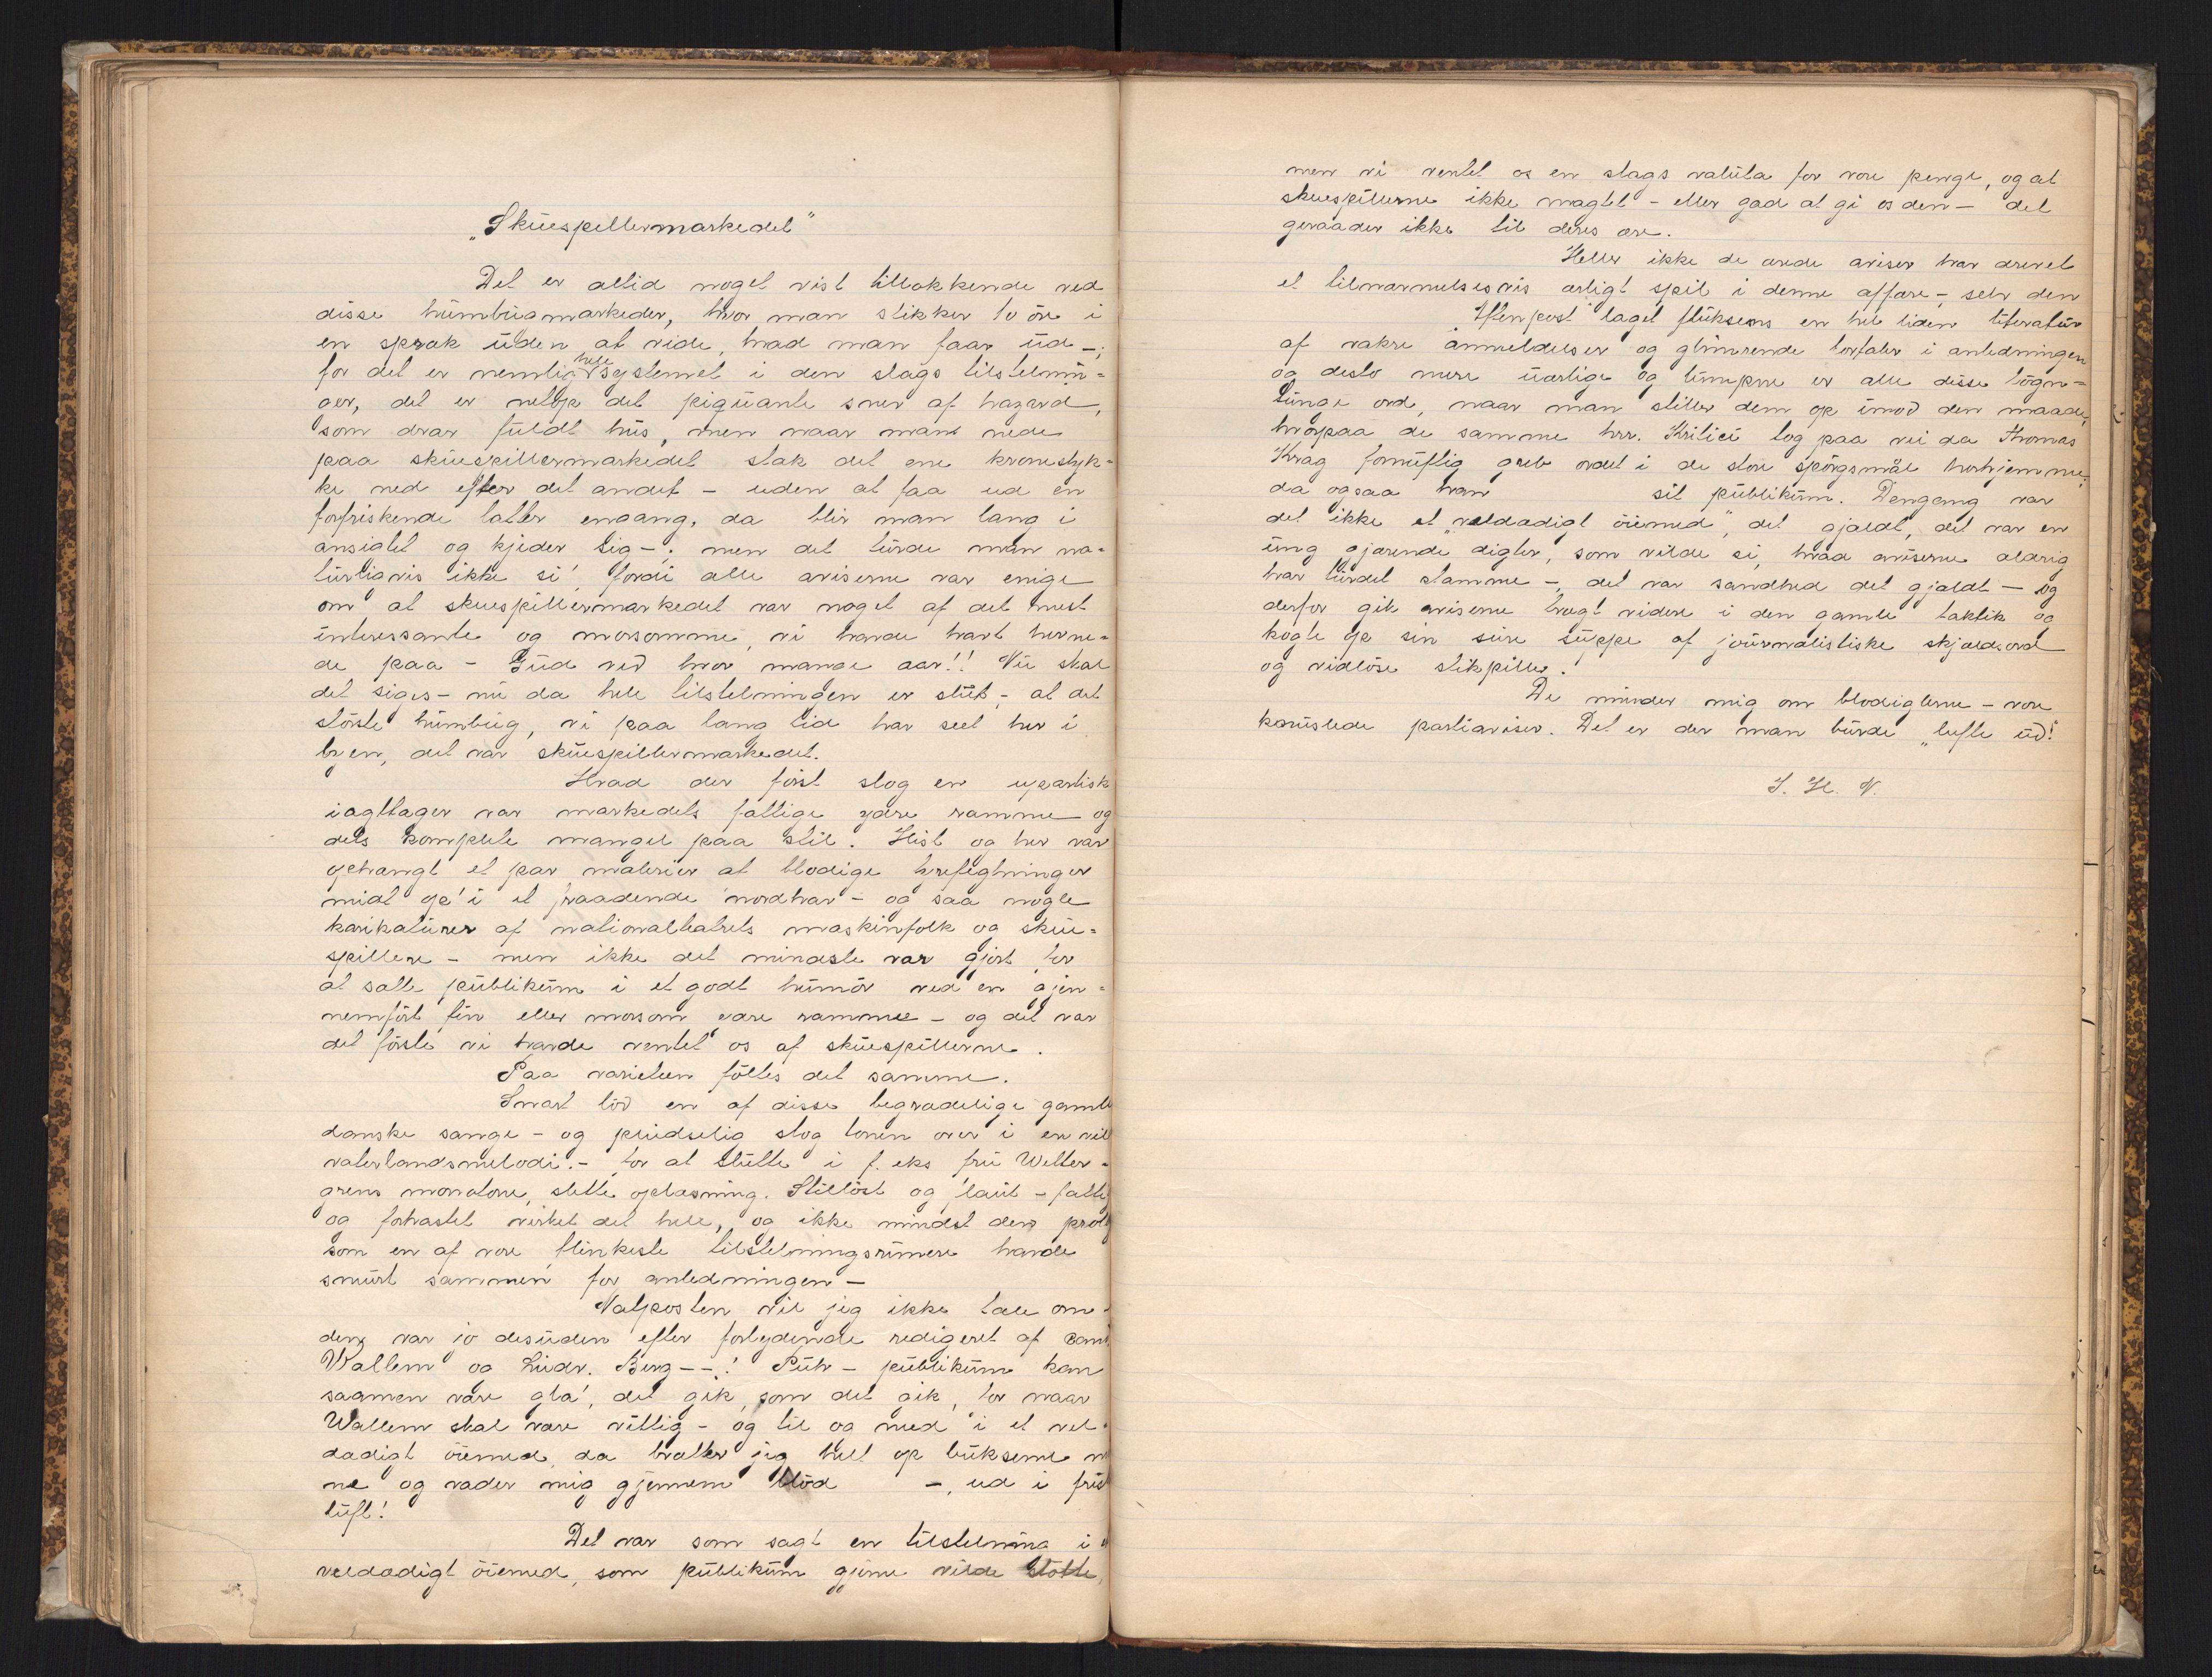 „Skuespillermarkedet"
Det er altid noget vist tillokkende ved
disse humbugmarkeder, hvor man stikker 10 öre i
en spræk uden at vide, hvad man faar ud –;
for det er nemlig hele systemet i den slags tilstelnin-
ger, det er netop det piquante snev af hazard,
som drar fuldt hus, men naar man nede
paa skuespillermarkedet stak det ene kronestyk-
ke ned efter det andet – uden at faa ud en
forfriskende latter engang, da blir man lang i
ansigtet og kjeder sig –; men det turde man na-
turligvis ikke si, fordi alle aviserne var enige
om at skuespillermarkedet var noget af det mest
interessante og morsomme, vi havde havt herne-
de paa – Gud ved hvor mange aar!! Nu skal
det siges – nu da hele tilstelningen er slut –, at det
störste humbug, vi paa lang tid har seet her i
byen, det var skuespillermarkedet.
Hvad der först slog en upartisk
iagttager var markedets fattige ydre ramme og
dets komplete mangel paa stil. Hist og her var
ophængt et par malerier at blodige
midt op i et fraadende nordhav – og saa nogle
karikaturer af nationalteatrets maskinfolk og skue-
spillere – men ikke det mindste var gjort for
at sætte publikum i et godt humör ved en gjen-
nemfört fin eller morsom ydre ramme – og det var
det förste vi havde ventet os af skuespillerne.
Paa varieteen föltes det samme.
Snart löd en af disse begrædelige gamle
danske sange – og pludselig slog tonen over i en vild
vaterlandsmelodi – for at slutte i f. eks fru Wetter-
grens monotone, slette oplæsning. Stillöst og flaut – fattig
og forhastet virket det hele, og ikke mindst den prolog
som en af vore flinkeste tilstelningsrimere havde
smurt sammen for anledningen –
Natposten vil jeg ikke tale om –
den var jo desuden efter forlydende redigeret af
Wallem og Ludv. Berg – –! Puh – publikum kan
saamen være gla', det gik, som det gik, for naar
Wallem skal være vittig – og til og med i et vel-
dædigt öiemed, da bretter jeg helt op bukserne mi
ne og vader mig gjennem blöd –, ud i frisk
luft!
Det var som sagt en tilstelning i
veldædigt öiemed, som publikum gjerne vilde stötte,
men vi ventet os en slags valuta for vore penge, og at
skuespillerne ikke magtet – eller gad at gi os den – det
geraader ikke til deres ære.
Heller ikke de ærede aviser har drevet
et tilnærmelsesvis ærligt spil i denne affære –, selv den
„Aftenpost" laget fluksens en hel liden literatur
af vakre anmeldelser og glimrende fortaler i anledningen
og desto mere uærlige og simplere er alle disse lögn-
tunge ord, naar man stiller dem op imod den maade,
hvorpaa de samme hrr. Kritici tog paa vei da Thomas
Krag fornuftig greb ordet i de store spörgsmål herhjemme;
da ogsaa han sit publikum. Dengang var
det ikke et „veldædigt öiemed", det gjaldt, det var en
ung gjærende digter, som vilde si, hvad aviserne aldrig
har turdet stamme –, det var sandhed det gjaldt – og
derfor gik aviserne trygt videre i den gamle taktik og
kogte op sin sure suppe af journalistiske skjældsord
og vidlöse stikpiller.
De minder mig om blodiglerne – vore
partiaviser. Det er der man burde „lufte ud!
S. H. V.